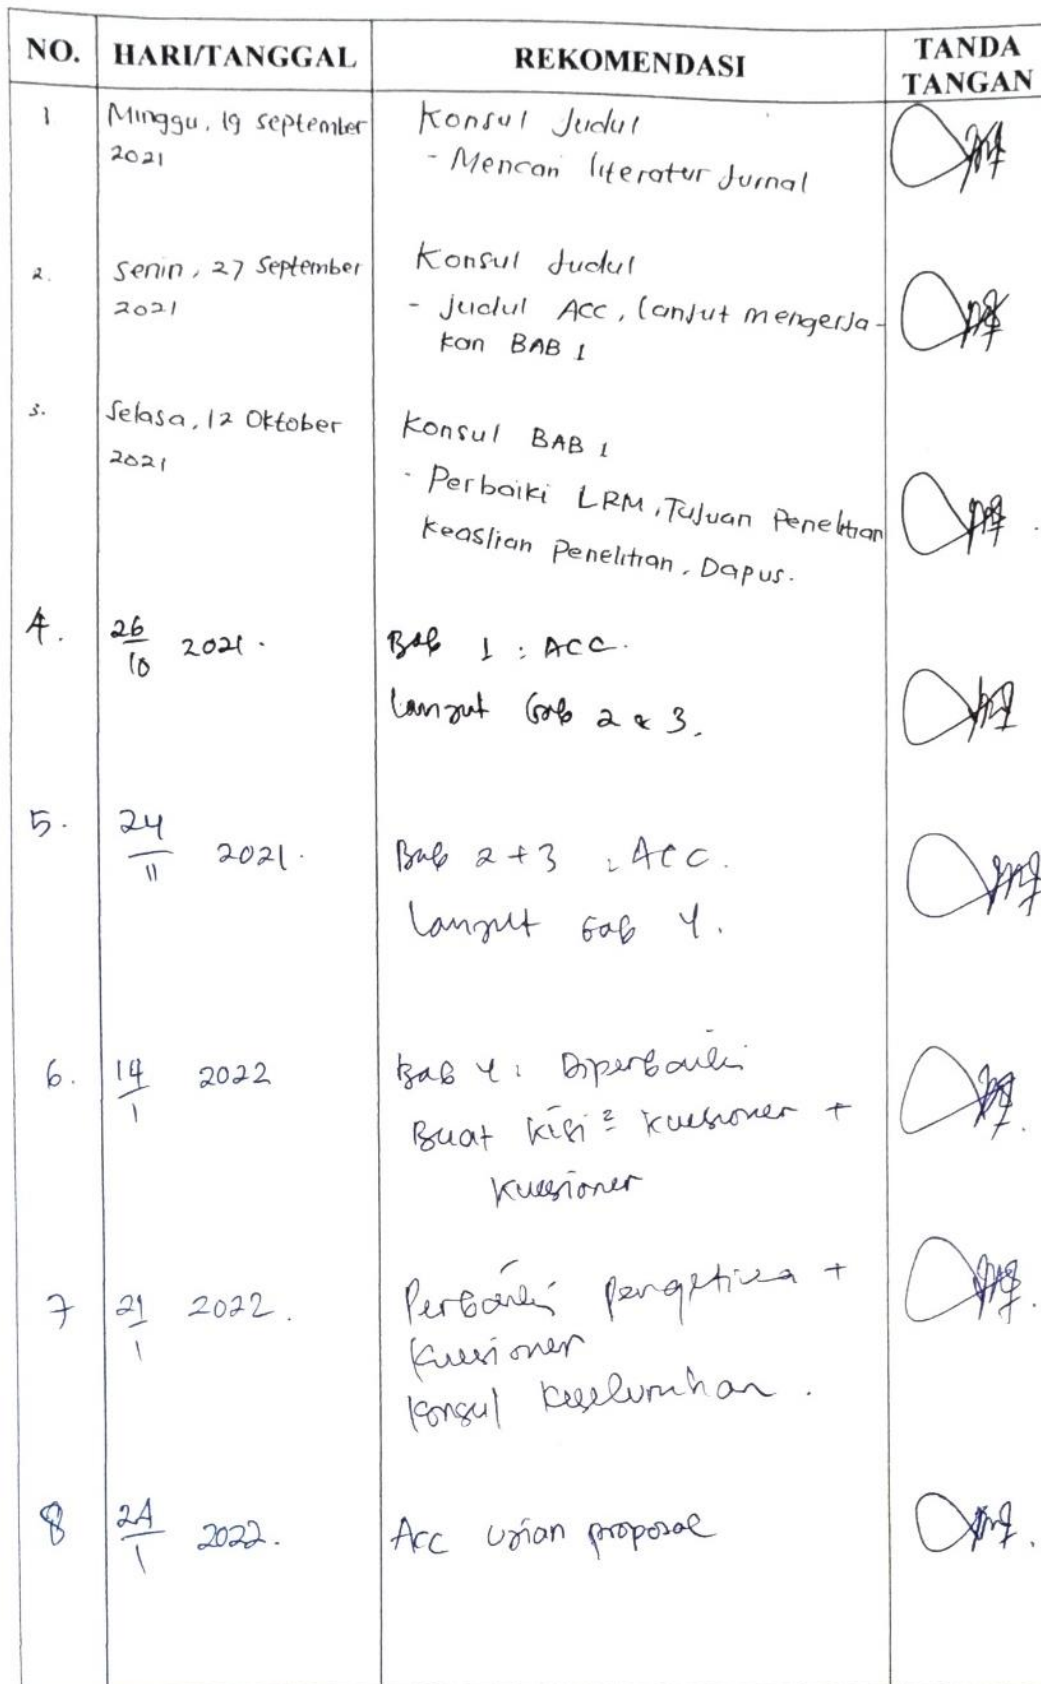 NO. HARI/TANGGAL REKOMENDASI TANDA TANGAN
1 Minggu, 19 September 2021
Konsul Judul
- Mencari literatur Jurnal
2. Senin, 27 September 2021
Konsul Judul
- Judul ACC, lanjut mengerja-
kan BAB 1
3. Selasa, 12 Oktober 2021
Konsul BAB 1
- Perbaiki LRM, Tujuan Penelitian
Keaslian Penelitian, Dapus.
4. 26/10 2021.
Bab 1 : ACC.
Lanjut Bab 2 & 3.
5. 24/11 2021.
Bab 2 + 3 : ACC.
Lanjut Bab 4.
6. 14/1 2022
Bab 4 : Diperbaiki
Buat kisi² kuesioner +
kuesioner
7 21/1 2022.
Perbaiki pengetikan +
Kuesioner
Konsul keseluruhan.
8 24/1 2022.
Acc ujian proposal